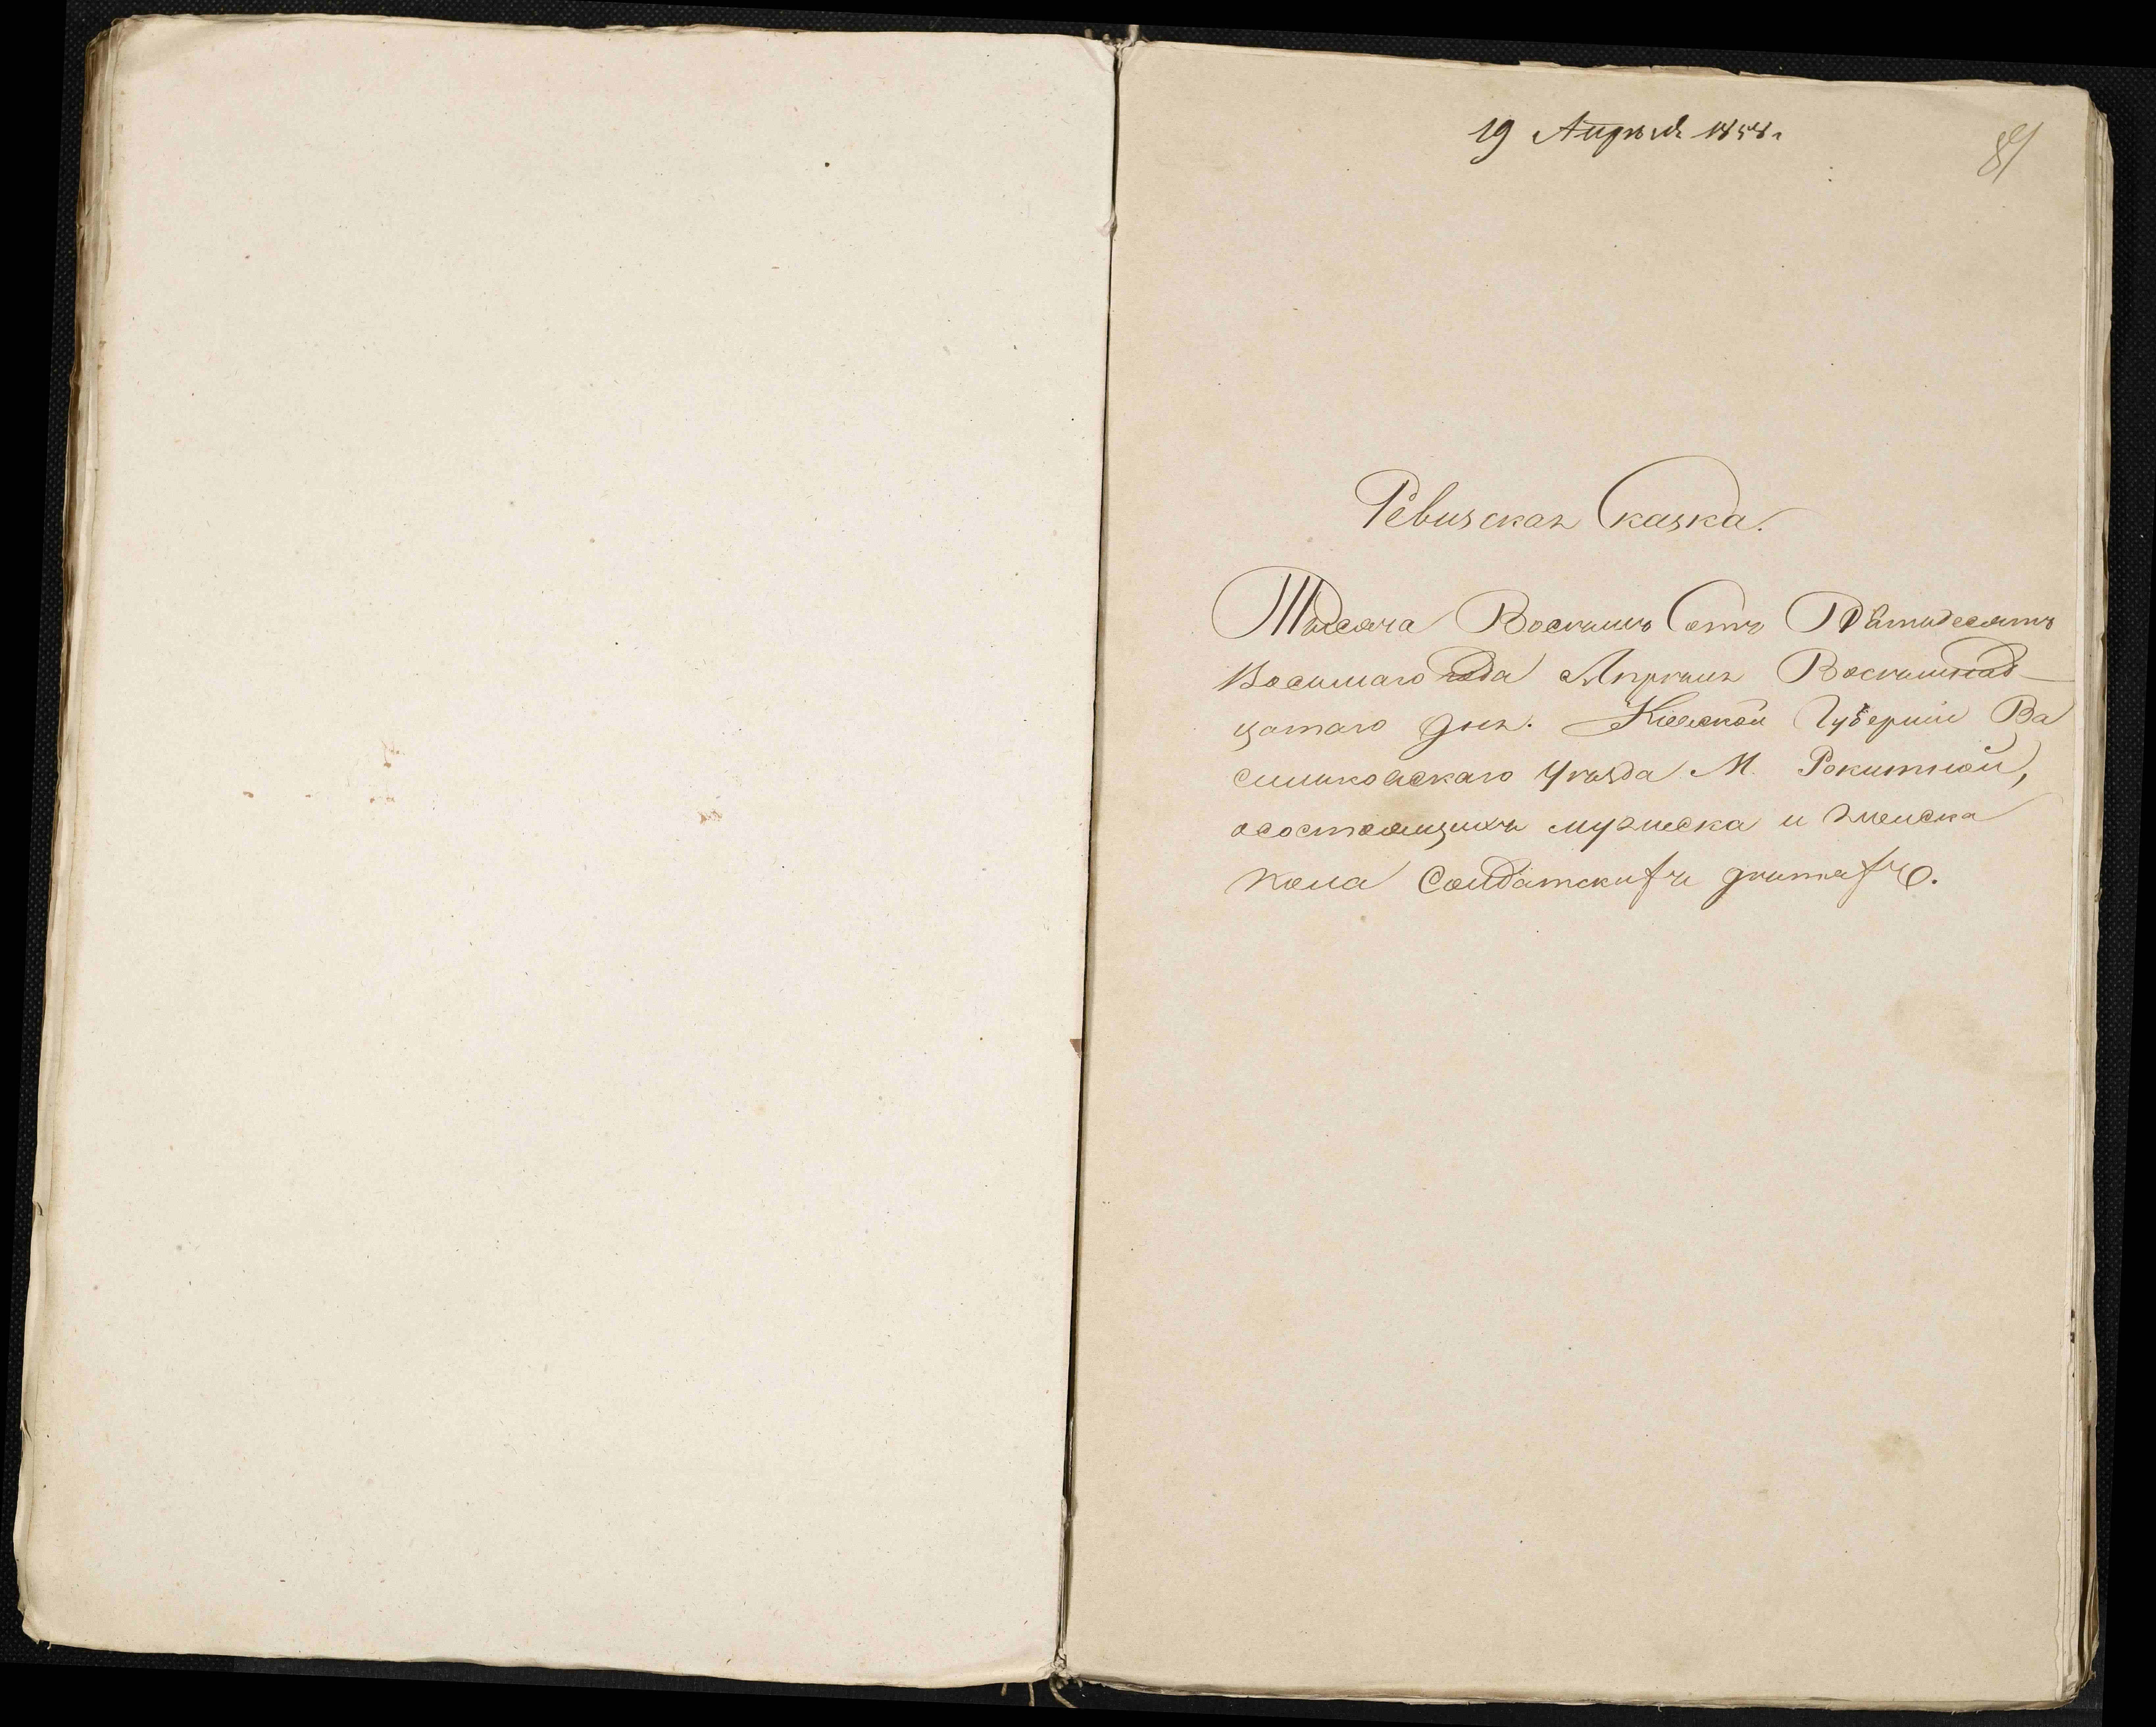 19 Апрѣля 1858 г
89
Ревизская Сказка.
Тысяча Восемь Сотъ Пятидесятъ
Восьмаго года Апреля Восемнад-
цатаго дня. Кіевской Губерніи Ва
сильковскаго Уезда М. Рокитной,
осостоящихъ мужеска и женска
пола Солдатскихъ детяхъ.